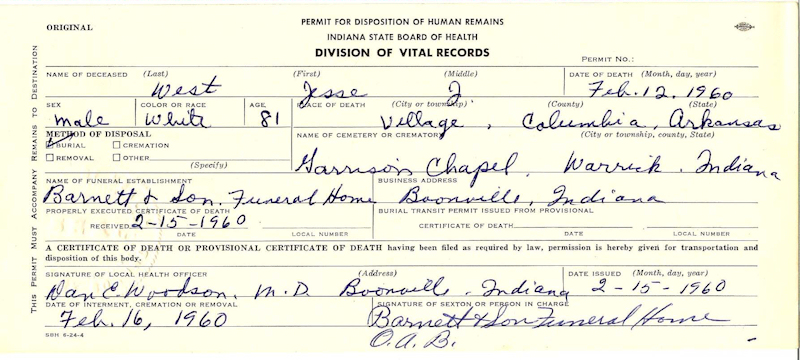 ORIGINAL
PERMIT FOR DISPOSITION OF HUMAN REMAINS
INDIANA STATE BOARD OF HEALTH
DIVISION OF VITAL RECORDS
PERMIT NO.:
THIS PERMIT MUST ACCOMPANY REMAINS TO DESTINATION
NAME OF DECEASED (Last) (First) (Middle) DATE OF DEATH (Month, day, year)
West Jesse J Feb. 12, 1960
SEX COLOR OR RACE AGE PLACE OF DEATH (City or township) (County) (State)
male White 81 Village, Columbia, Arkansas
METHOD OF DISPOSAL NAME OF CEMETERY OR CREMATORY (City or township, county, State)
BURIAL CREMATION
REMOVAL OTHER (Specify)
Garrison Chapel, Warrick, Indiana
NAME OF FUNERAL ESTABLISHMENT BUSINESS ADDRESS
Barnett & Son Funeral Home Boonville, Indiana
PROPERLY EXECUTED CERTIFICATE OF DEATH BURIAL TRANSIT PERMIT ISSUED FROM PROVISIONAL
RECEIVED 2-15-1960 CERTIFICATE OF DEATH
DATE LOCAL NUMBER DATE LOCAL NUMBER
A CERTIFICATE OF DEATH OR PROVISIONAL CERTIFICATE OF DEATH having been filed as required by law, permission is hereby given for transportation and
disposition of this body.
SIGNATURE OF LOCAL HEALTH OFFICER (Address) DATE ISSUED (Month, day, year)
Dan E. Woodson, M.D. Boonville, Indiana 2-15-1960
DATE OF INTERMENT, CREMATION OR REMOVAL SIGNATURE OF SEXTON OR PERSON IN CHARGE
Feb. 16, 1960 Barnett & Son Funeral Home
O.A.B.
SBH 6-24-4